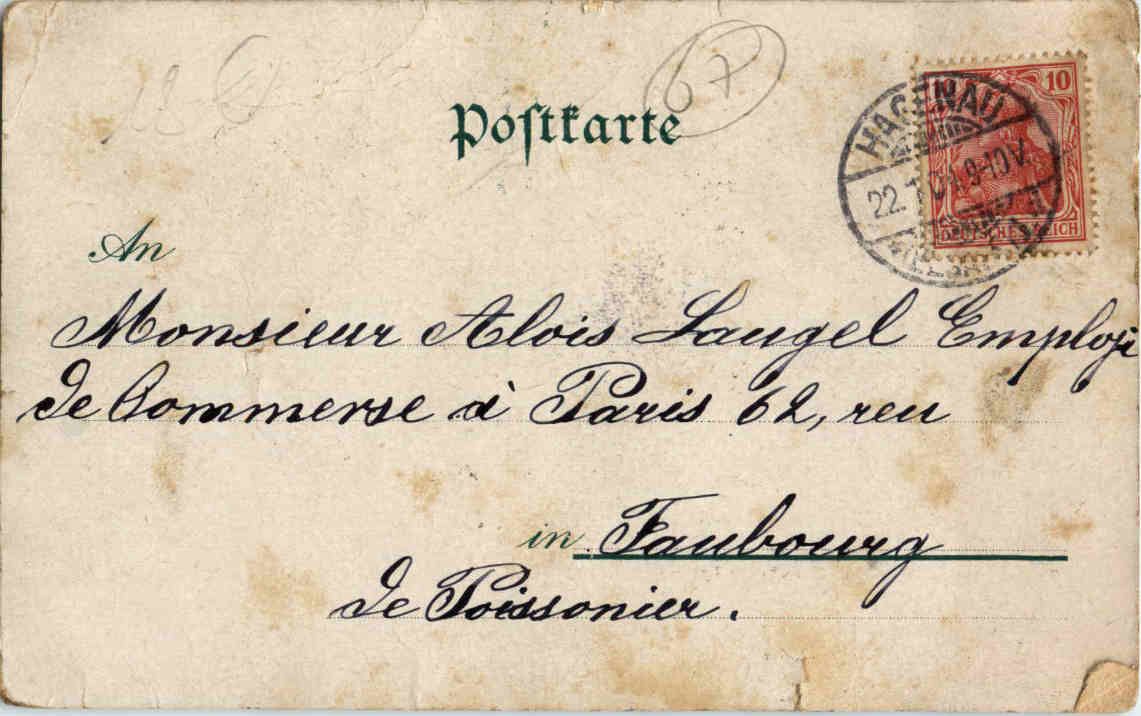 67
Postkarte
10
HAGENAU
9-10V.
DEUTSCHES REICH
An
Monsieur Alois Laugel Employi
de Commerse à Paris 62, reu
in Faubourg
de Poissonier.